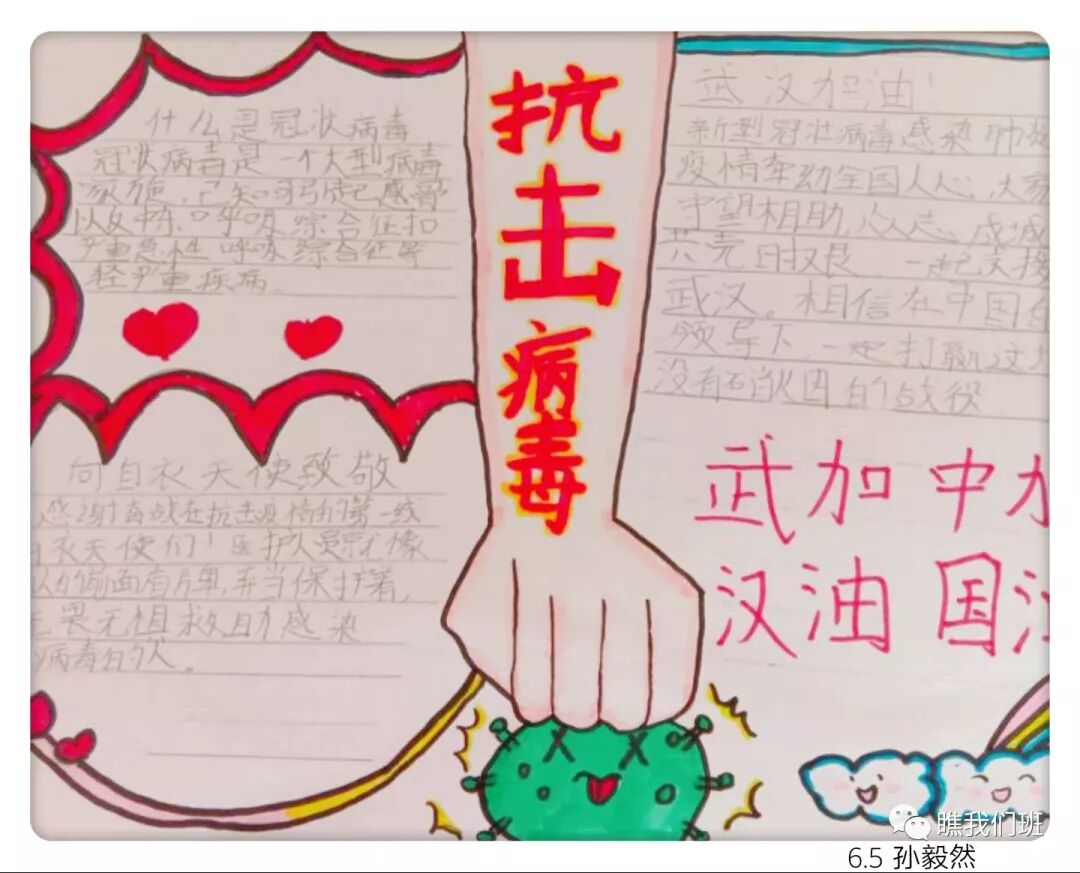 什么是冠状病毒
冠状病毒是一个大型病毒
家族, 已知可引起感冒
以及中东呼吸综合征和
严重急性呼吸综合征等
轻严重疾病。
抗击病毒
武汉加油!
新型冠状病毒感染肺
疫情牵动全国人心, 大家
守望相助, 众人志成城
共克时艰 一起支援
武汉。相信在中国
领导下, 一定打赢这
没有硝火因的战役
向白衣天使致敬
些身奋战在抗击疫情的第一线
衣天使们! 医护人员就像
面盾牌, 保护着,
畏无惧救助感染
病毒的人。
武汉加油
中国
瞧我们班
6.5 孙毅然